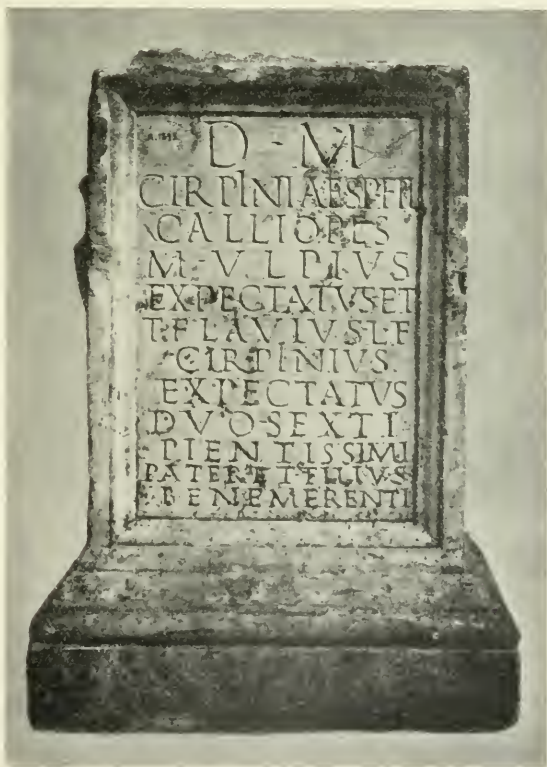 D · M
CIRPINIAE SP FIL
CALLIOPES
M · VLPIVS
EXPECTATVS ET
T · FLAVIVS L · F
CIRPINIVS
EXPECTATVS
DVO · SEXTI
PIENTISSIMI
PATER ET FILIVS
BENE MERENTI